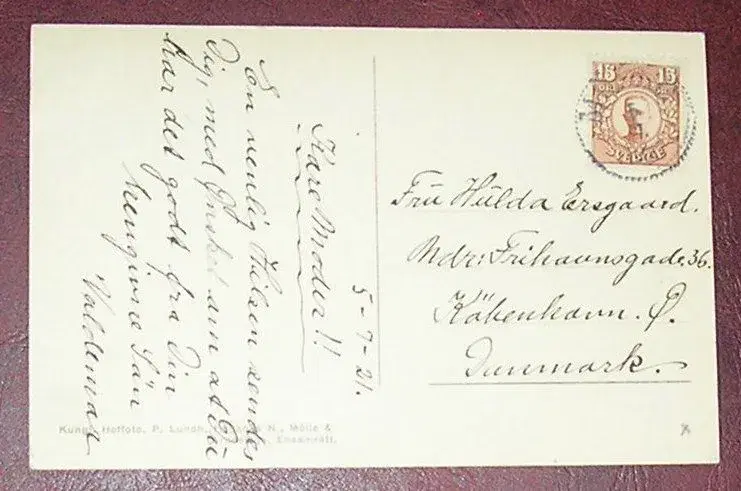 5-7-21.
Kære Moder!!
En venlig Hilsen sendes
Dig, med Ønsket om at Du
har det godt fra Din
hengivne Sön
Valdemar
15 15
SVERIGE
Fru Hulda Ersgaard.
Ndr: Frihavnsgade 36.
Köbenhavn. Ø.
Danmark.
Kungl. Hoffoto. P. Lundh, N., Mölle &